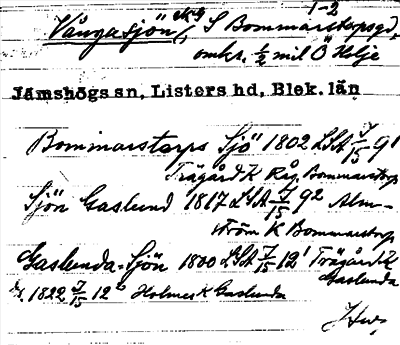 1-2
Vångasjön S Bommarstorpsgd,
omkr. 1/2 mil Ö Holje
Jämshögs sn, Listers hd, Blek. län
Bommarstorps Sjö 1802 LSA J/15 9¹
Trägård K Rå, Bommarstorp
Sjön Gaslund 1817 LSA J/15 9² Alm-
ström K Bommarstorp
Gaslunda-Sjön 1800 LSA J/15 12¹ Trägård K
Gaslunda
1822 J/15 12² Holmer K Gaslunda